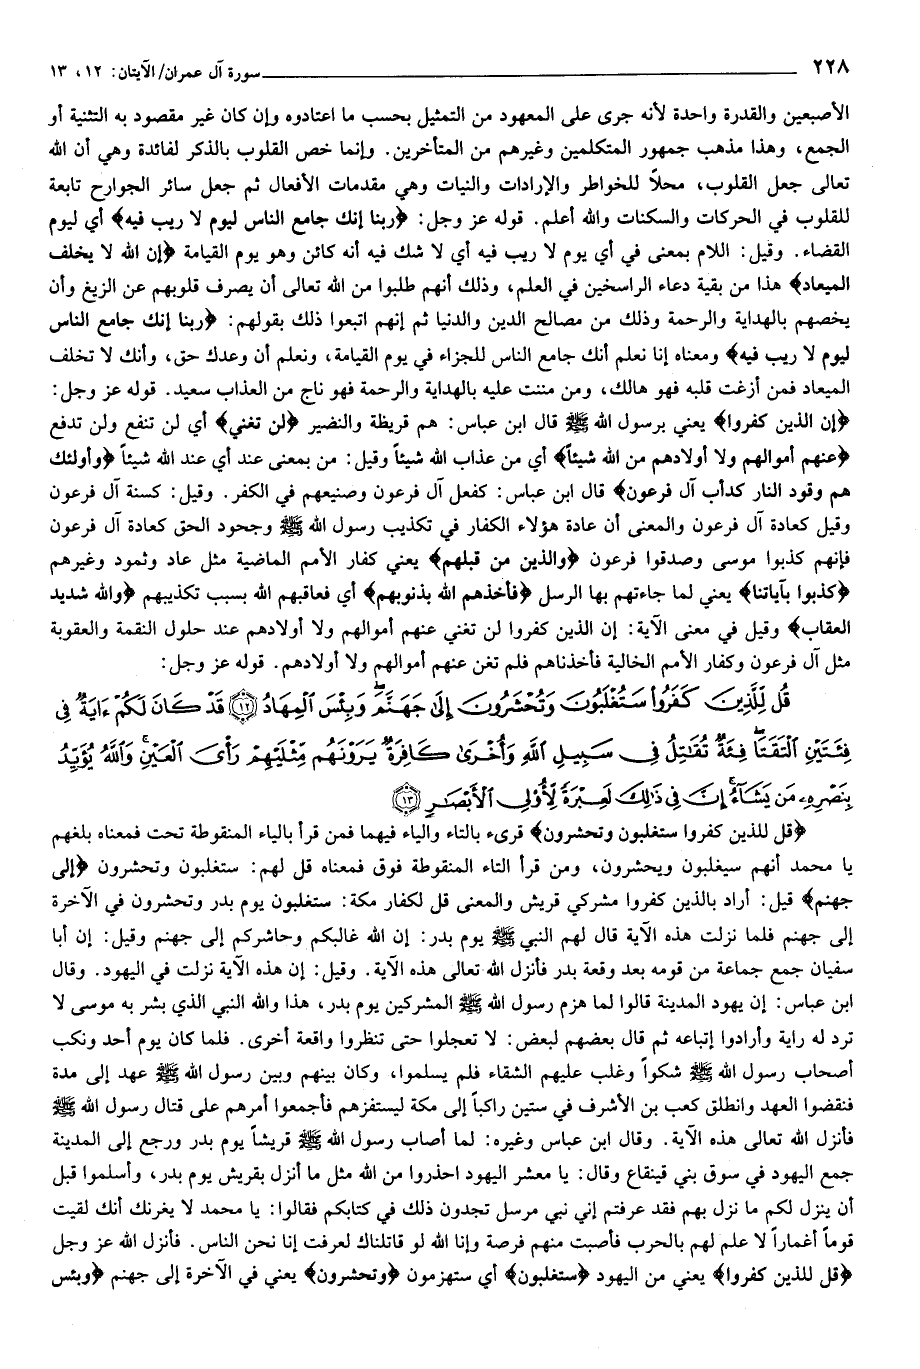 ٢٢٨ سورة آل عمران/ الآيتان: ١٢ ، ١٣
الأصبعين والقدرة واحدة لأنه جرى على المعهود من التمثيل بحسب ما اعتادوه وإن كان غير مقصود به التثنية أو
الجمع، وهذا مذهب جمهور المتكلمين وغيرهم من المتأخرين. وإنما خص القلوب بالذكر لفائدة وهي أن الله
تعالى جعل القلوب، محلاً للخواطر والإرادات والنيات وهي مقدمات الأفعال ثم جعل سائر الجوارح تابعة
للقلوب في الحركات والسكنات والله أعلم. قوله عز وجل: ﴿ربنا إنك جامع الناس ليوم لا ريب فيه﴾ أي ليوم
القضاء. وقيل: اللام بمعنى في أي يوم لا ريب فيه أي لا شك فيه أنه كائن وهو يوم القيامة ﴿إن الله لا يخلف
الميعاد﴾ هذا من بقية دعاء الراسخين في العلم، وذلك أنهم طلبوا من الله تعالى أن يصرف قلوبهم عن الزيغ وأن
يخصهم بالهداية والرحمة وذلك من مصالح الدين والدنيا ثم إنهم اتبعوا ذلك بقولهم: ﴿ربنا إنك جامع الناس
ليوم لا ريب فيه﴾ ومعناه إنا نعلم أنك جامع الناس للجزاء في يوم القيامة، ونعلم أن وعدك حق، وأنك لا تخلف
الميعاد فمن أزغت قلبه فهو هالك، ومن مننت عليه بالهداية والرحمة فهو ناج من العذاب سعيد. قوله عز وجل:
﴿إن الذين كفروا﴾ يعني برسول الله ﷺ قال ابن عباس: هم قريظة والنضير ﴿لن تغني﴾ أي لن تنفع ولن تدفع
﴿عنهم أموالهم ولا أولادهم من الله شيئاً﴾ أي من عذاب الله شيئاً وقيل: من بمعنى عند أي عند الله شيئاً ﴿وأولئك
هم وقود النار كدأب آل فرعون﴾ قال ابن عباس: كفعل آل فرعون وصنيعهم في الكفر. وقيل: كسنة آل فرعون
وقيل كعادة آل فرعون والمعنى أن عادة هؤلاء الكفار في تكذيب رسول الله ﷺ وجحود الحق كعادة آل فرعون
فإنهم كذبوا موسى وصدقوا فرعون ﴿والذين من قبلهم﴾ يعني كفار الأمم الماضية مثل عاد وثمود وغيرهم
﴿كذبوا بآياتنا﴾ يعني لما جاءتهم بها الرسل ﴿فأخذهم الله بذنوبهم﴾ أي فعاقبهم الله بسبب تكذيبهم ﴿والله شديد
العقاب﴾ وقيل في معنى الآية: إن الذين كفروا لن تغني عنهم أموالهم ولا أولادهم عند حلول النقمة والعقوبة
مثل آل فرعون وكفار الأمم الخالية فأخذناهم فلم تغن عنهم أموالهم ولا أولادهم. قوله عز وجل:
قُل لِّلَّذِينَ كَفَرُواْ سَتُغْلَبُونَ وَتُحْشَرُونَ إِلَىٰ جَهَنَّمَۚ وَبِئْسَ ٱلْمِهَادُ ﴿١٢﴾ قَدْ كَانَ لَكُمْ ءَايَةٌ فِى
فِئَتَيْنِ ٱلْتَقَتَاۖ فِئَةٌ تُقَٰتِلُ فِى سَبِيلِ ٱللَّهِ وَأُخْرَىٰ كَافِرَةٌ يَرَوْنَهُم مِّثْلَيْهِمْ رَأْىَ ٱلْعَيْنِۚ وَٱللَّهُ يُؤَيِّدُ
بِنَصْرِهِۦ مَن يَشَآءُۗ إِنَّ فِى ذَٰلِكَ لَعِبْرَةً لِّأُوْلِى ٱلْأَبْصَٰرِ ﴿١٣﴾
﴿قل للذين كفروا ستغلبون وتحشرون﴾ قرىء بالتاء والياء فيهما فمن قرأ بالياء المنقوطة تحت فمعناه بلغهم
يا محمد أنهم سيغلبون ويحشرون، ومن قرأ التاء المنقوطة فوق فمعناه قل لهم: ستغلبون وتحشرون ﴿إلى
جهنم﴾ قيل: أراد بالذين كفروا مشركي قريش والمعنى قل لكفار مكة: ستغلبون يوم بدر وتحشرون في الآخرة
إلى جهنم فلما نزلت هذه الآية قال لهم النبي ﷺ يوم بدر: إن الله غالبكم وحاشركم إلى جهنم وقيل: إن أبا
سفيان جمع جماعة من قومه بعد وقعة بدر فأنزل الله تعالى هذه الآية. وقيل: إن هذه الآية نزلت في اليهود. وقال
ابن عباس: إن يهود المدينة قالوا لما هزم رسول الله ﷺ المشركين يوم بدر، هذا والله النبي الذي بشر به موسى لا
ترد له راية وأرادوا إتباعه ثم قال بعضهم لبعض: لا تعجلوا حتى تنظروا واقعة أخرى. فلما كان يوم أحد ونكب
أصحاب رسول الله ﷺ شكواً وغلب عليهم الشقاء فلم يسلموا، وكان بينهم وبين رسول الله ﷺ عهد إلى مدة
فنقضوا العهد وانطلق كعب بن الأشرف في ستين راكباً إلى مكة ليستفزهم فأجمعوا أمرهم على قتال رسول الله ﷺ
فأنزل الله تعالى هذه الآية. وقال ابن عباس وغيره: لما أصاب رسول الله ﷺ قريشاً يوم بدر ورجع إلى المدينة
جمع اليهود في سوق بني قينقاع وقال: يا معشر اليهود احذروا من الله مثل ما أنزل بقريش يوم بدر، وأسلموا قبل
أن ينزل لكم ما نزل بهم فقد عرفتم إني نبي مرسل تجدون ذلك في كتابكم فقالوا: يا محمد لا يغرنك أنك لقيت
قوماً أغماراً لا علم لهم بالحرب فأصبت منهم فرصة وإنا الله لو قاتلناك لعرفت إنا نحن الناس. فأنزل الله عز وجل
﴿قل للذين كفروا﴾ يعني من اليهود ﴿ستغلبون﴾ أي ستهزمون ﴿وتحشرون﴾ يعني في الآخرة إلى جهنم ﴿وبئس